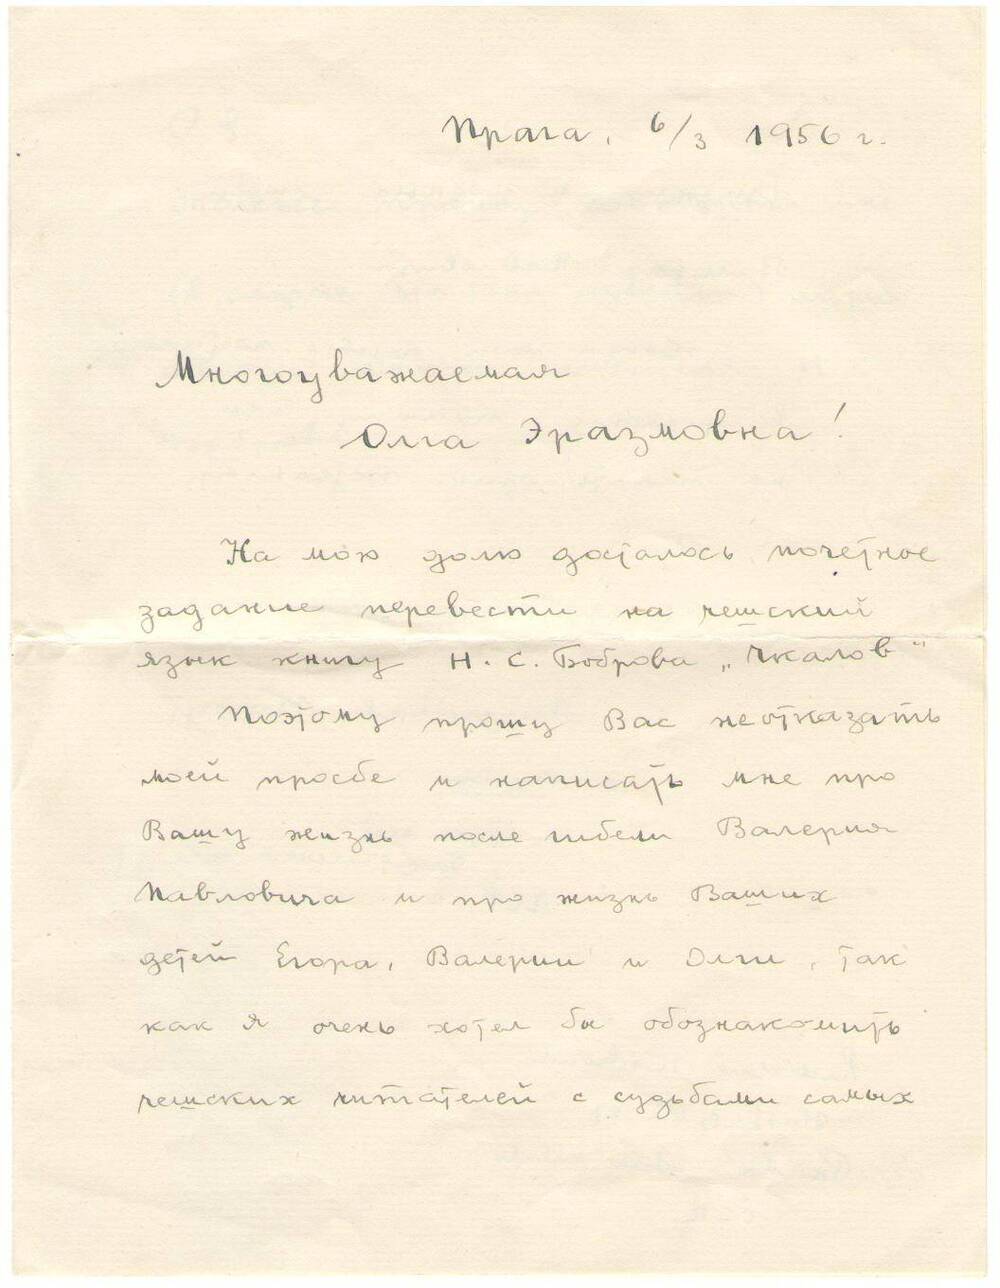 Прага, 6/3 1956 г.
Многоуважаемая
Олга Эразмовна!
На мою долю досталось почетное
задание перевести на чешский
язык книгу Н. С. Боброва „Чкалов“
Поэтому прошу Вас неотказать
моей просбе и написать мне про
Вашу жизнь после гибели Валерия
Павловича и про жизнь Ваших
детей Егора, Валерии и Олги, так
как я очень хотел бы обознакомить
чешских читателей с судьбами самых